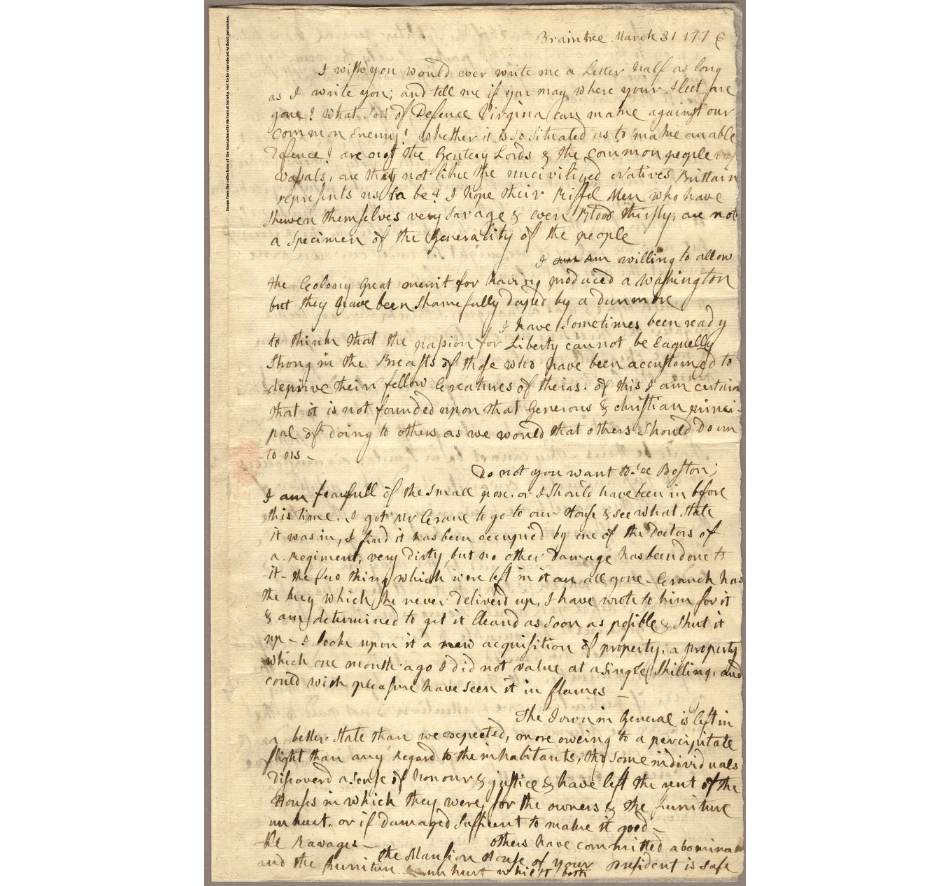 Braintree March 31 1776
I wish you would ever write me a Letter half as long
as I write you; and tell me if you may where your Fleet are
gone? what sort of Defence Virginia can make against our
common Enemy? Whether it is so situated as to make an able
Defence? are not the Gentery Lords & the common people
vassals, are they not like the uncivilized Natives Brittain
represents us to be? I hope their Riffel Men who have
shewen themselves very savage & even Blood thirsty, are not
a specimen of the Generality of the people
I am willing to allow
the Colony great merrit for having produced a Washington
but they have been shamefully duped by a Dunmore
I have sometimes been ready
to think that the passion for Liberty cannot be Eaquelly
Strong in the Breasts of those who have been accustomed to
deprive their fellow Creatures of theirs. of this I am certain
that it is not founded upon that Generous & christian princi-
pal of doing to others as we would that others should do un
to us –
Do not you want to see Boston;
I am fearfull of the small pox, or I should have been in before
this time. I got Mr Crane to go to our House & see what state
it was in, I find it has been occupied by one of the Doctors of
a Regiment, very dirty but no other Damage has been done to
it – the few things which were left in it are all gone – Cranch has
the key which he never deliverd up, I have wrote to him for it
& am determined to get it cleand as soon as posible & shut it
up – I look upon it a new acquisition of property, a property
which one month ago I did not value at a single Shilling, and
could with pleasure have seen it in flames –
The Town in General is left in
a better state than we expected, more oweing to a percipitate
flight than any Regard to the inhabitants, tho some individuals
discoverd a sense of honour & justice & have left the rent of the
Houses in which they were, for the owners & the furniture
unhurt, or if damaged sufficent to make it good –
others have committed abominable
Ravages – the Mansion House of your President is safe
and the furniture unhurt whilst both